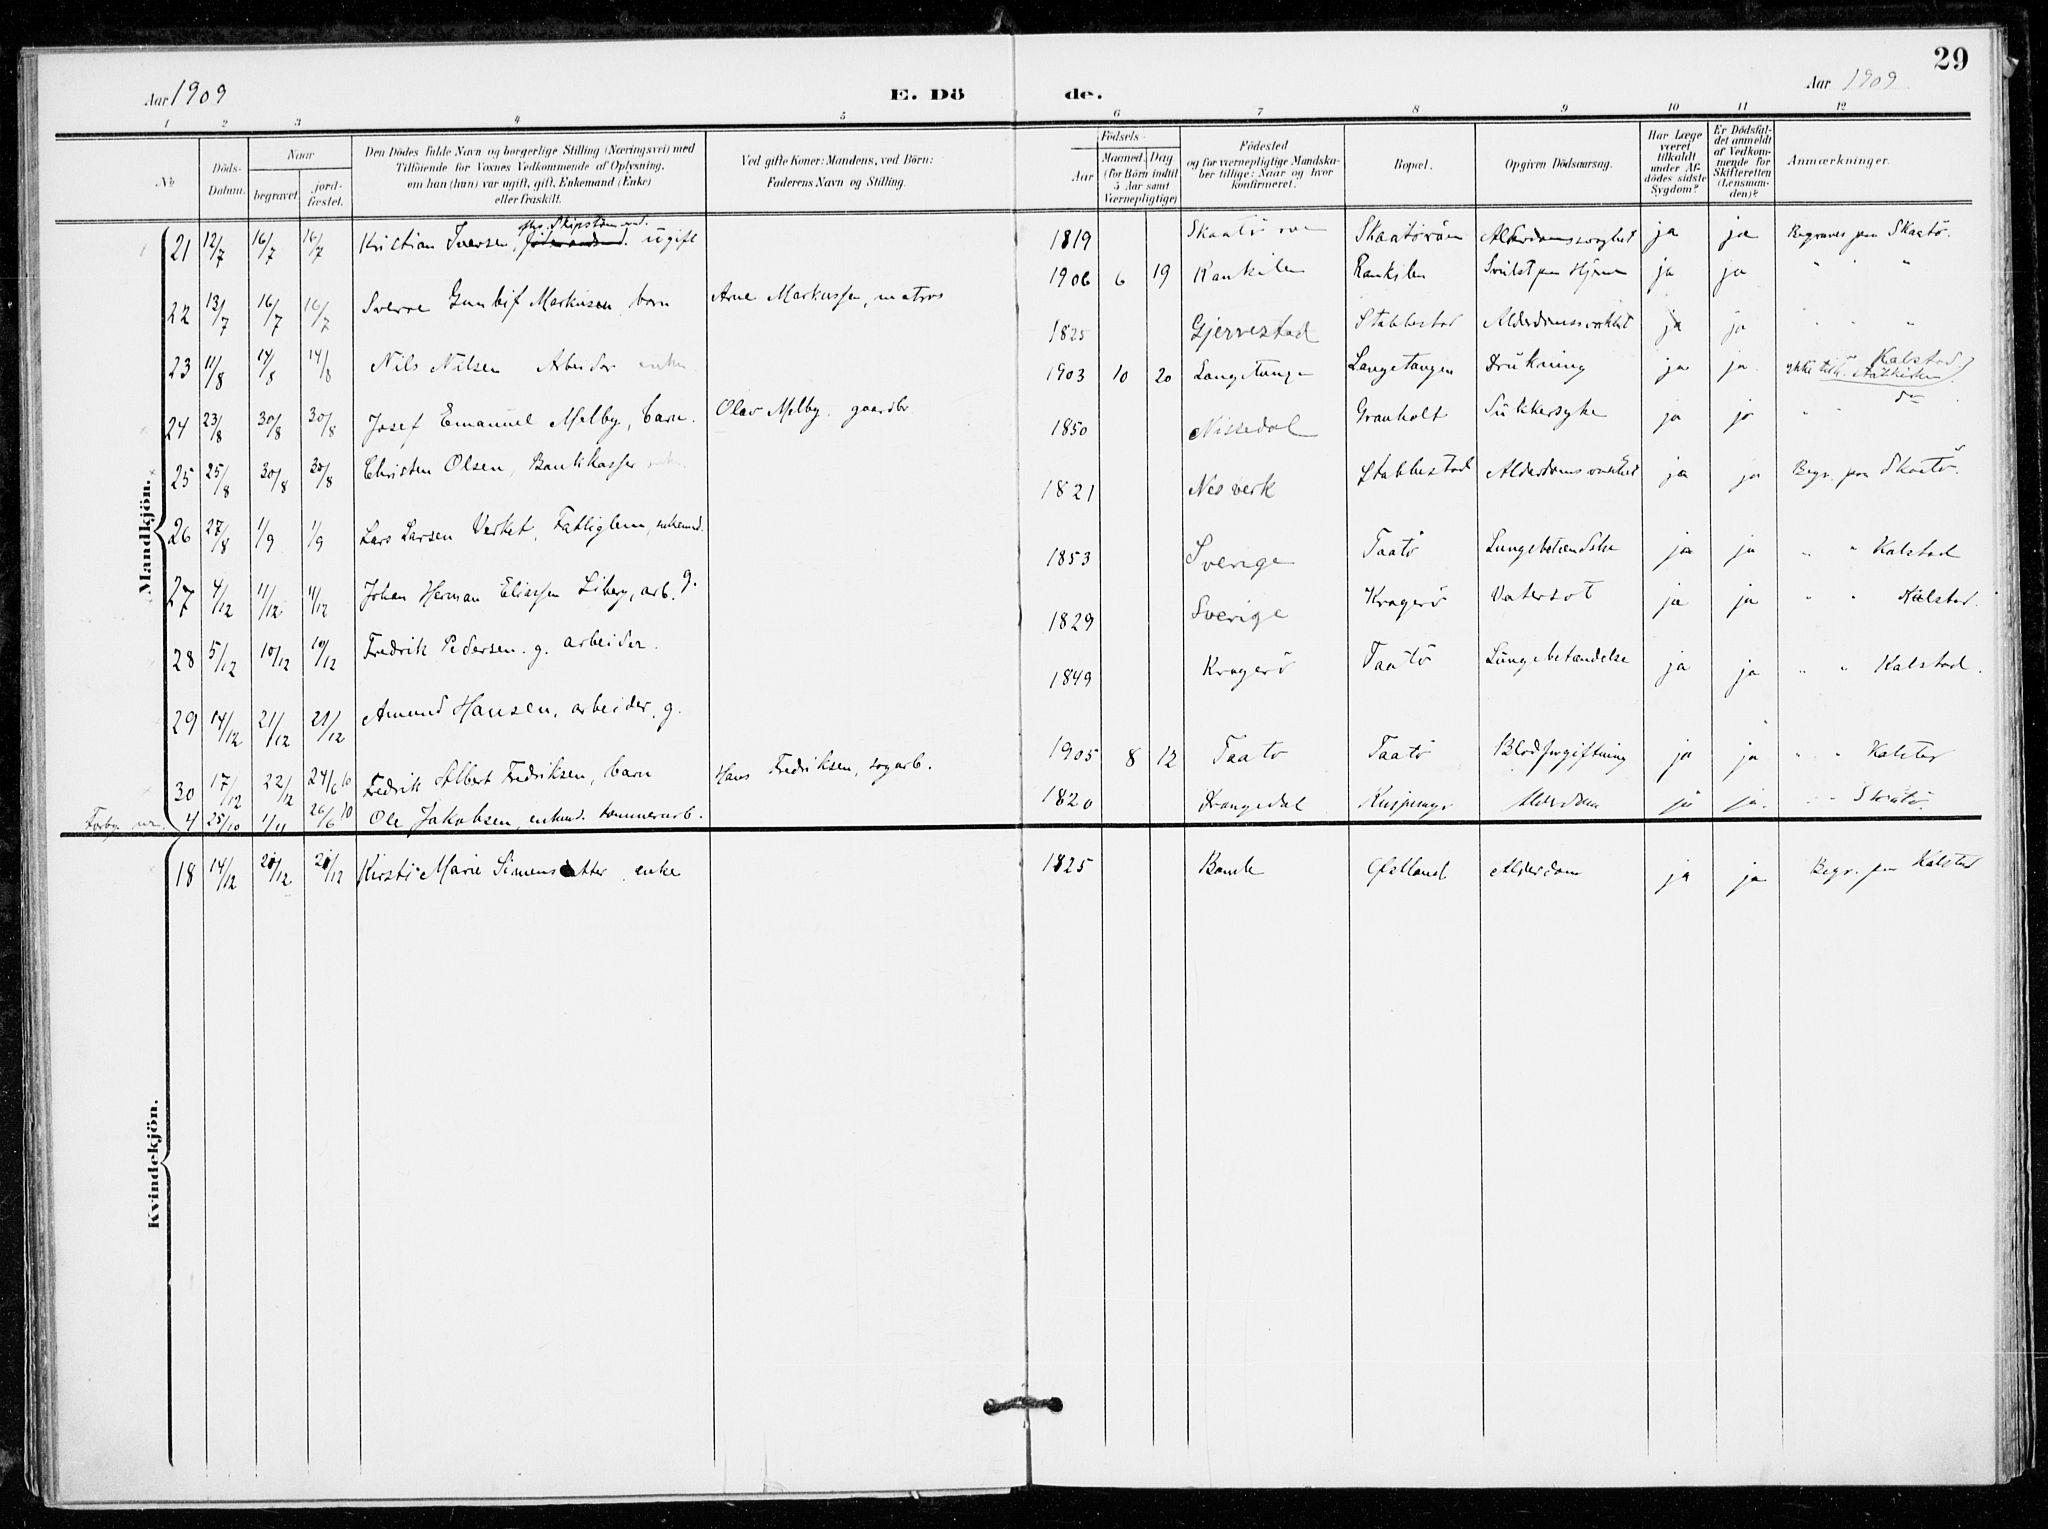 29
Aar 1909 E. Dö de. Aar 1909
1 2 3 4 5 6 7 8 9 10 11 12
No. Döds-Datum. Naar begravet. jordfæstet. Den Dödes fulde Navn og borgerlige Stilling (Næringsvei) med Tilföiende for Voxnes Vedkommende af Oplysning, om han (hun) var ugift, gift, Enkemand (Enke) eller fraskilt. Ved gifte Koner: Mandens, ved Börn: Faderens Navn og Stilling. Födsels- Aar Maaned. Dag. (for Börn indtil 5 Aar samt Værnepligtige) Födested og for værnepligtige Mandskaber tillige: Naar og hvor konfirmeret. Bopæl. Opgiven Dödsaarsag. Har Læge været tilkaldt under Afdödes sidste Sygdom? Er Dödsfaldet anmeldt af Vedkommende for Skifteretten (Lensmanden)? Anmærkninger.
Mandkjön.
21 12/7 16/7 16/7 Kristian Iversen, Skipstømmd. ugift 1819 Skaatø Skaatørøen Alderdomssvaghet ja ja Begraves paa Skaatø.
22 13/7 16/7 16/7 Sverre Markusen barn Arne Markussen, matros 1906 6 19 Rankilen Rankilen Svulst paa Hjernen ja ja " " "
23 11/8 14/8 14/8 Nils Nilsen Arbeider enkem 1825 Gjerrestad Stabbestad Alderdomssvakhet ja ja " " "
24 23/8 30/8 30/8 Josef Emanuel Melby, barn. Olav Melby, gaardbr 1903 10 20 Langetangen Langetangen Drukning ja ja. Kalstad
25 25/8 30/8 30/8 Christen Olsen, Bankkasser 1850 Nissedal Granholt Sukkersyke ja ja " " do
26 27/8 1/9 1/9 Lars Larsen Verket, Fattiglem, enkemd. 1821 Nes verk Stabbestad Alderdomssvakhet ja ja Begr. paa Skaatø.
27 4/12 11/12 11/12 Johan Herman Eliassen Siberg, arb. g. 1853 Sverige Taatø Lungebetændelse ja ja " " Kalstad
28 5/12 10/12 10/12 Fredrik Pedersen. g. arbeider. 1829 Sverige Kragerø Vatersot ja ja " " Kalstad.
29 14/12 21/12 21/12 Amund Hansen, arbeider, g. 1849 Kragerø Taatø Lungebetændelse ja ja " " Kalstad.
30 17/12 22/12 24/6 10 Fredrik Albert Fredriksen, barn Hans Fredriksen, sagarb. 1905 8 12 Taatø Taatø Blodforgiftning ja ja " " Kalstad
Forbg. nr. 4 25/10 1/11 26/6 10 Ole Jakobsen, enkmd. tømmerarb. 1820 Drangedal Alderdom ja ja. " " Skåtø.
Kvindekjön.
18 14/12 20/12 20/12 Kirsti Marie Simensdatter enke 1825 Bamle Østland Alderdom ja ja Begr. paa Kalstad